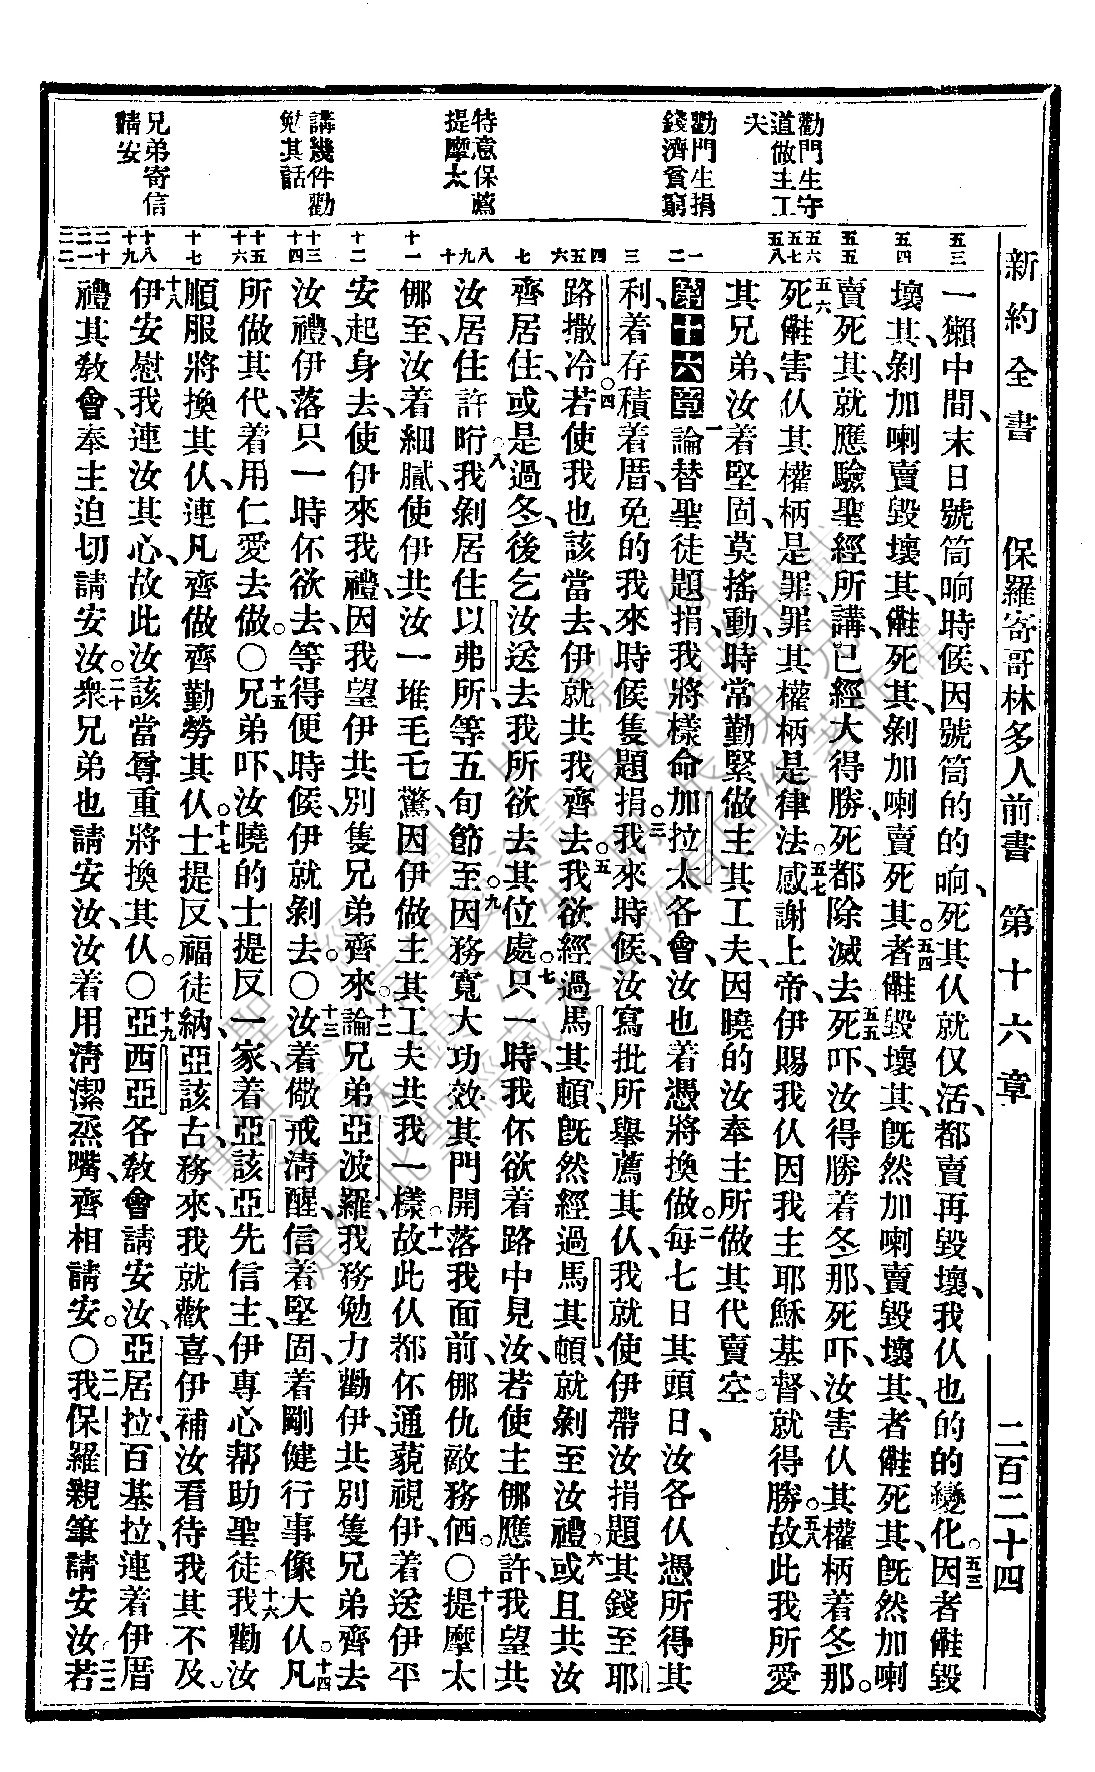 新約全書　保羅寄哥林多人前書　第十六章　二百二十四
勸門生守
道做主工
夫
勸門生捐
錢濟貧窮
特意保薦
提摩太
講幾件勸
勉其話
兄弟寄信
請安
一獺中間、末日號筒响時候、因號筒的的响、死其仈就仅活、都賣再毀壞、我仈也的的變化。五三因者㒕毀
壞其、剝加喇賣毀壞其、㒕死其、剝加喇賣死其。五四者㒕毀壞其、旣然加喇賣毀壞其、者㒕死其、旣然加喇
賣死其、就應驗聖經所講、已經大得勝、死都除滅去。五五死吓、汝得勝着冬那、死吓、汝害仈其權柄着冬那。
五六死㒕害仈其權柄是罪、罪其權柄是律法。五七感謝上帝、伊賜我仈因我主耶穌基督、就得勝。五八故此我所愛
其兄弟、汝着堅固、莫搖動、時常勤緊做主其工夫、因曉的汝奉主所做其代賣空。
第十六章 一論替聖徒題捐、我將樣命加拉太各會、汝也着憑將換做。二每七日其頭日、汝各仈憑所得其
利、着存積着厝、免的我來時候隻題捐。三我來時候、汝寫批所舉薦其仈、我就使伊帶汝捐題其錢至耶
路撒冷。四若使我也該當去、伊就共我齊去。五我欲經過馬其頓、旣然經過馬其頓、就剝至汝禮。六或且共汝
齊居住、或是過冬、後乞汝送去我所欲去其位處。七只一時我伓欲着路中見汝、若使主㑚應許、我望共
汝居住許𣍐。八我剝居住以弗所、等五旬節至。九因務寬大功效其門開落我面前、㑚仇敵務価。〇十提摩太
㑚至、汝着細膩、使伊共汝一堆毛乇驚、因伊做主其工夫共我一樣。十一故此仈都伓通藐視伊、着送伊平
安起身去、使伊來我禮、因我望伊共別隻兄弟齊來。十二論兄弟亞波羅、我務勉力勸伊、共別隻兄弟齊去
汝禮、伊落只一時伓欲去、等得便時候、伊就剝去。〇十三汝着儆戒淸醒、信着堅固、着剛健行事像大仈。十四凡
所做其代、着用仁愛去做。〇十五兄弟吓、汝曉的士提反一家、着亞該亞先信主、伊專心幫助聖徒。十六我勸汝
順服將換其仈、連凡齊做齊勤勞其仈。十七士提反福徒納亞該古務來、我就歡喜、伊補汝看待我其不及。
十八伊安慰我連汝其心、故此汝該當尊重將換其仈。〇十九亞西亞各教會請安汝、亞居拉百基拉、連着伊厝
禮其教會、奉主迫切請安汝。二十衆兄弟也請安汝、汝着用淸潔烝嘴、齊相請安。〇二一我保羅親筆請安汝。二二若